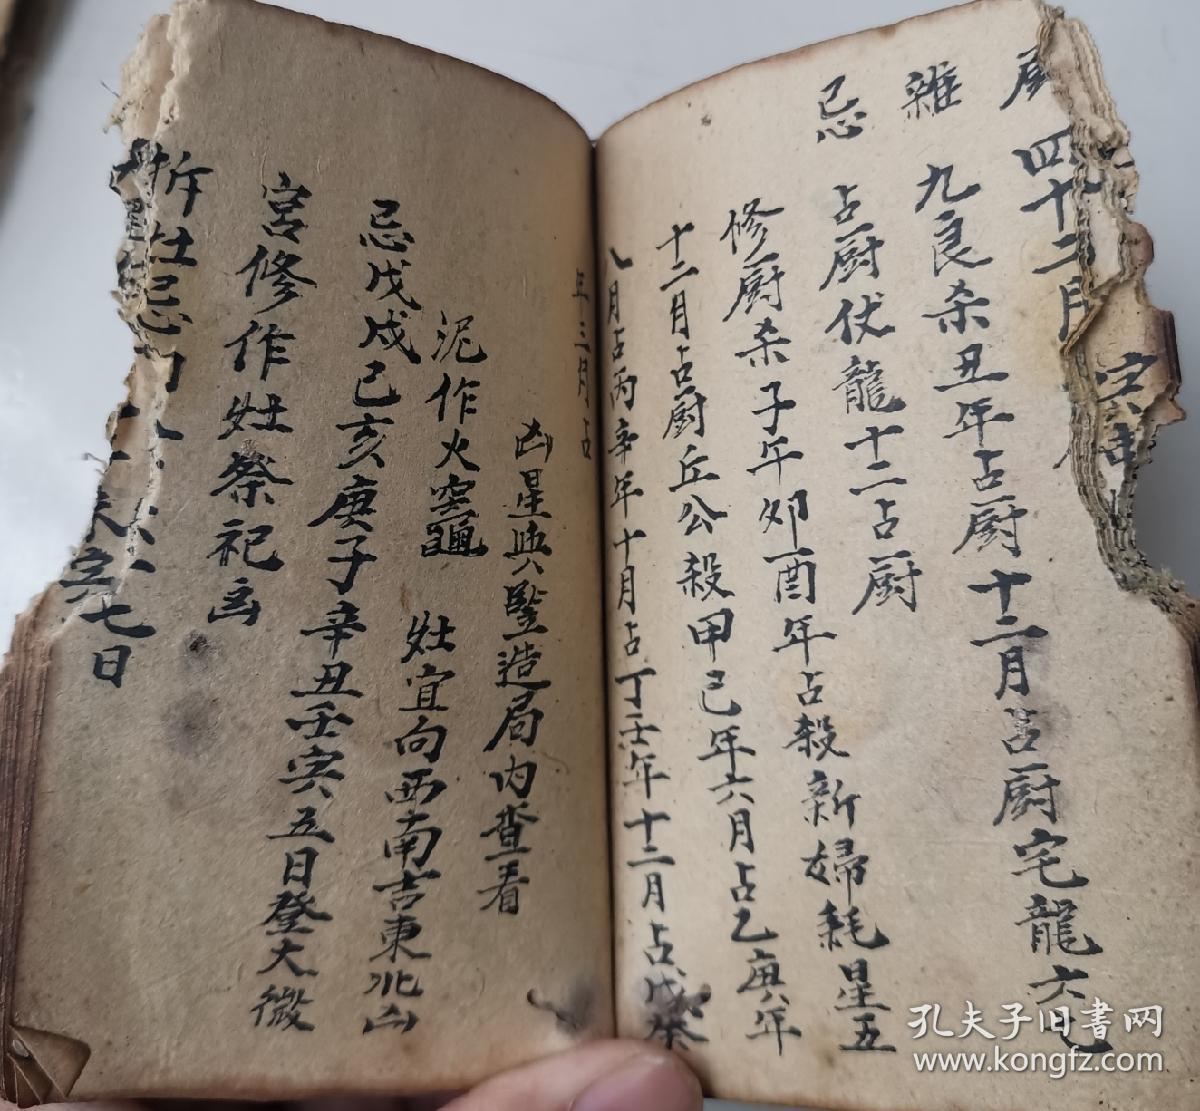 厨 四十二月
雜 九良杀丑年占厨十二月占厨宅龍六七
忌 占厨伏龍十二占厨
修厨杀子午卯酉年占殺新婦耗星五
十二月占厨丘公殺甲己年六月占乙庚年
八月占丙辛年十月占丁壬年十二月占戊癸
年三月占
凶星與豎造局内查看
泥作火窑 灶宜向西南吉東北凶
忌戊戌己亥庚子辛丑壬寅五日登大微
宮修作灶祭祀凶
拆灶忌
七日
孔夫子旧書网
www.kongfz.com